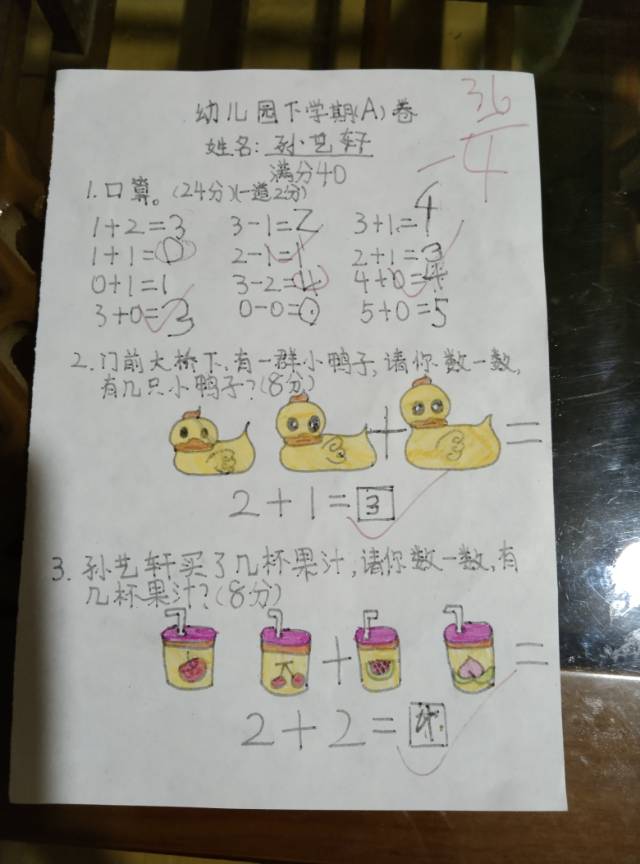 幼儿园下学期(A)卷
姓名:孙艺轩
满分40
36
-4
1.口算。(24分)(一道2分)
1+2=3 3-1=2 3+1=4
1+1=0 2-1=1 2+1=3
0+1=1 3-2=4 4+0=4
3+0=3 0-0=0 5+0=5
2.门前大桥下,有一群小鸭子,请你数一数,
有几只小鸭子?(8分)
+ =
2+1=3
3.孙艺轩买了几杯果汁,请你数一数,有
几杯果汁?(8分)
+ =
2+2=4